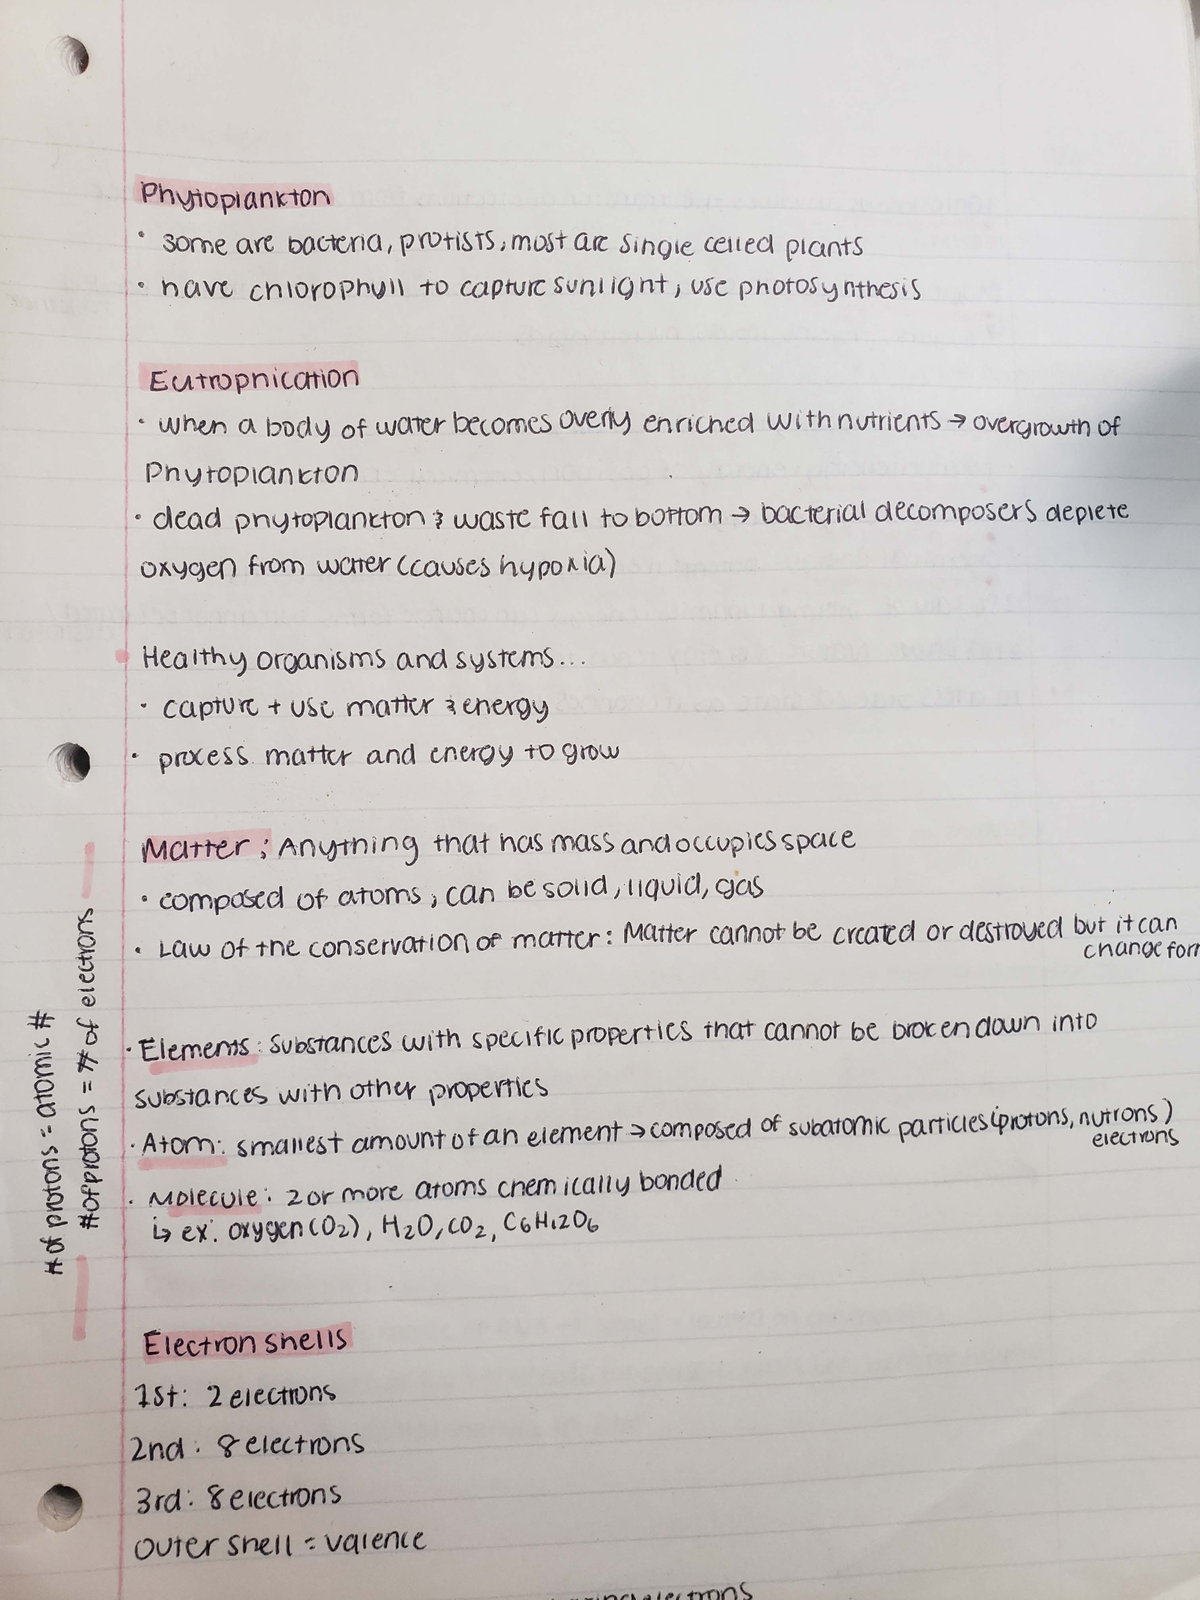 Phytoplankton
• some are bacteria, protists, most are single celled plants
• have chlorophyll to capture sunlight, use photosynthesis
Eutrophication
• when a body of water becomes overly enriched with nutrients → overgrowth of
Phytoplankton
• dead phytoplankton & waste fall to bottom → bacterial decomposers deplete
oxygen from water (causes hypoxia)
Healthy organisms and systems...
• capture + use matter & energy
• process matter and energy to grow
Matter: Anything that has mass and occupies space
• composed of atoms, can be solid, liquid, gas
• Law of the conservation of matter: Matter cannot be created or destroyed but it can
change form
• Elements: substances with specific properties that cannot be broken down into
substances with other properties
• Atom: smallest amount of an element → composed of subatomic particles (protons, nutrons)
electrons
• Molecule: 2 or more atoms chemically bonded
↳ ex: oxygen (O2), H2O, CO2, C6H12O6
# of protons = atomic #
# of protons = # of electrons
Electron shells
1st: 2 electrons
2nd: 8 electrons
3rd: 8 electrons
outer shell = valence
electrons